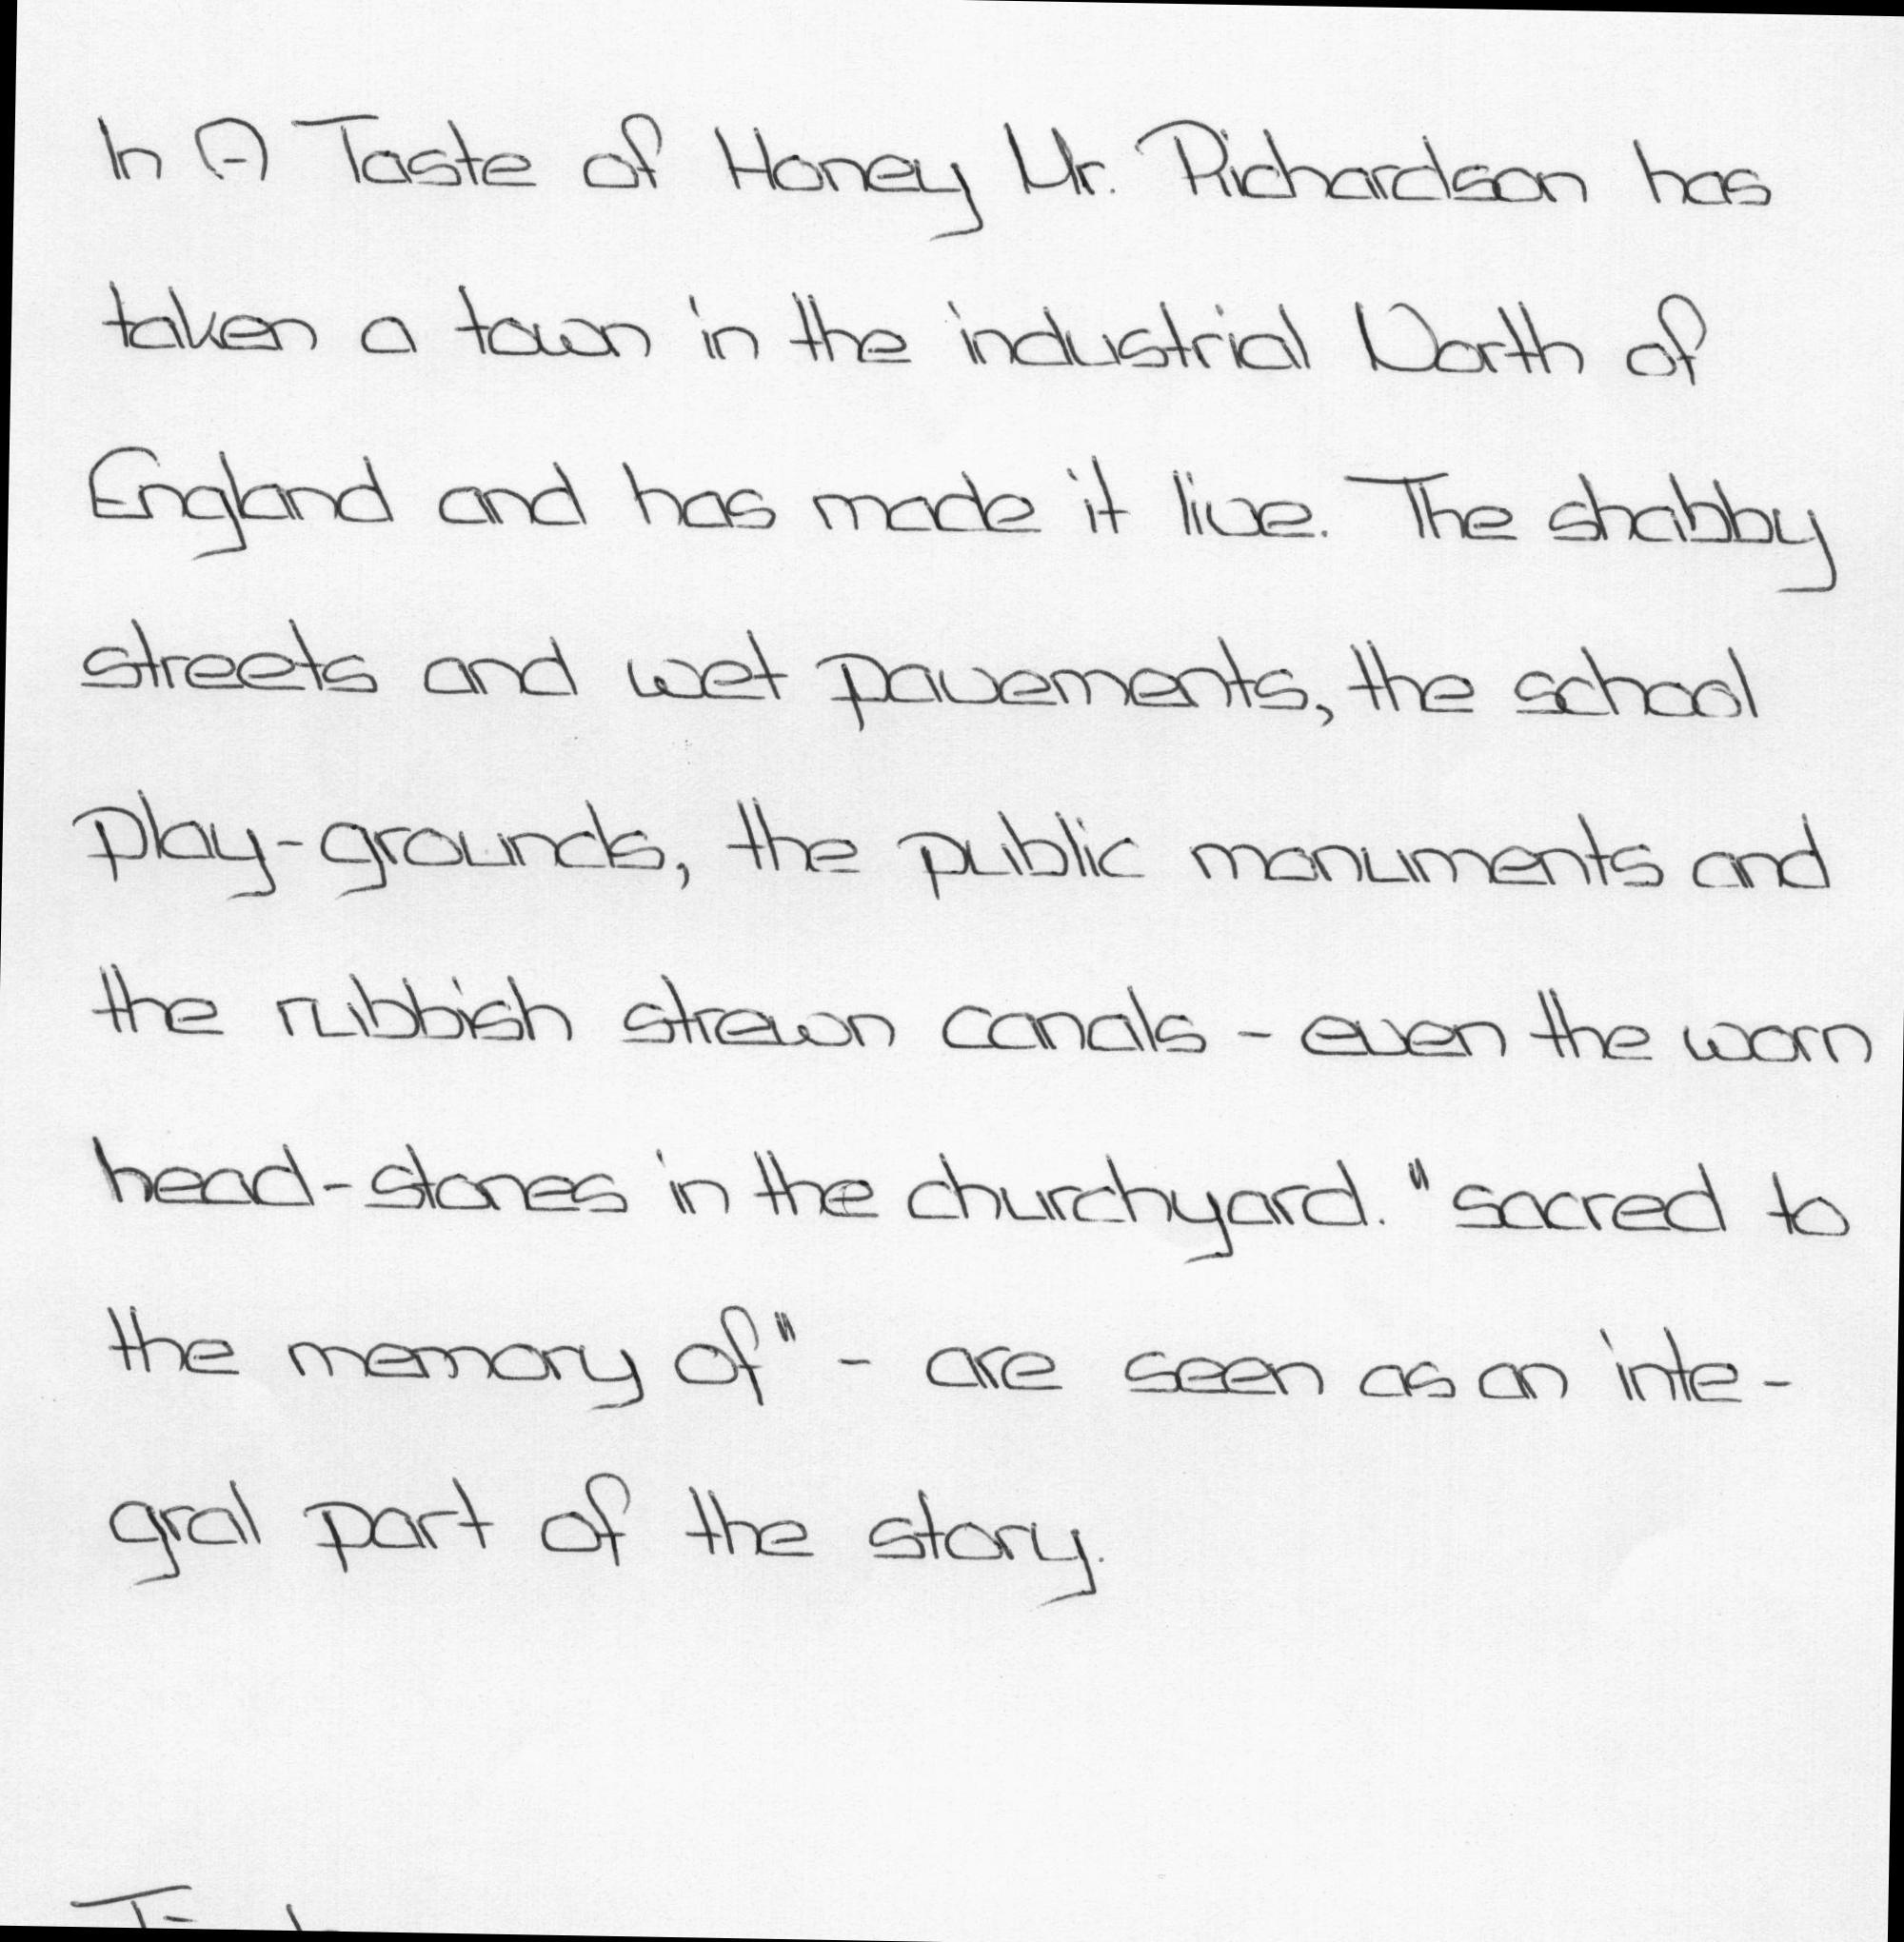 In A Taste of Honey Mr. Richardson has
taken a town in the industrial North of
England and has made it live. The shabby
streets and wet pavements, the school
play-grounds, the public monuments and
the rubbish strewn canals - even the worn
head-stones in the churchyard. "sacred to
the memory of" - are seen as an inte-
gral part of the story.